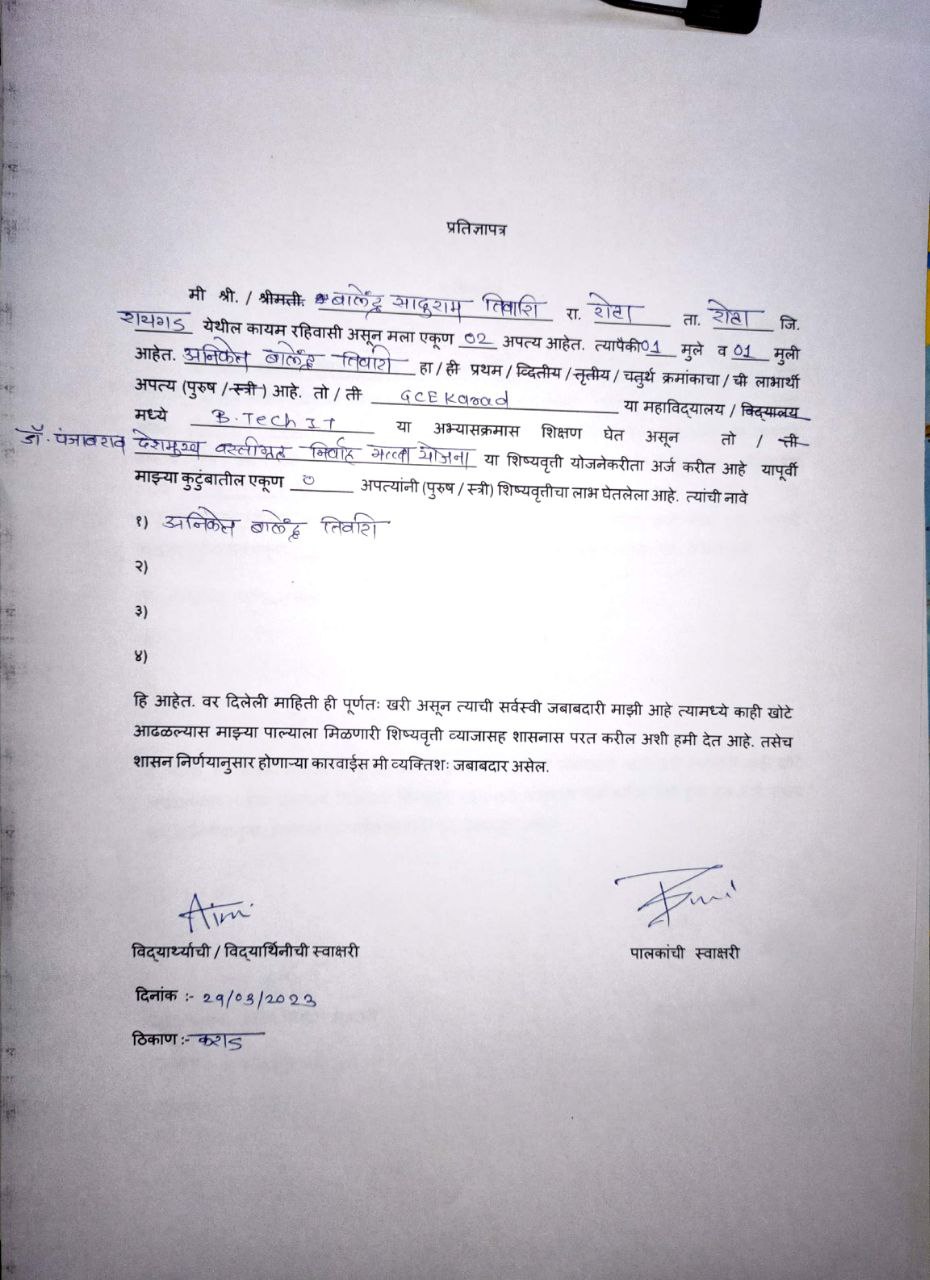 प्रतिज्ञापत्र
मी श्री. / श्रीमती. बालेंद्र सादुराम तिवारि रा. रोहा ता. रोहा जि.
रायगड येथील कायम रहिवासी असून मला एकूण 02 अपत्य आहेत. त्यापैकी 01 मुले व 01 मुली
आहेत. अनिकेत बालेंद्र तिवारी हा / ही प्रथम / व्दितीय / तृतीय / चतुर्थ क्रमांकाचा / ची लाभार्थी
अपत्य (पुरुष / स्त्री) आहे. तो / ती GCE Karad या महाविद्यालय / विद्यालय
मध्ये B.Tech IT या अभ्यासक्रमास शिक्षण घेत असून तो / ती
डॉ. पंजाबराव देशमुख वस्तीगृह निर्वाह भत्ता योजना या शिष्यवृत्ती योजनेकरीता अर्ज करीत आहे यापूर्वी
माझ्या कुटुंबातील एकूण अपत्यांनी (पुरुष / स्त्री) शिष्यवृत्तीचा लाभ घेतलेला आहे. त्यांची नावे
१) अनिकेत बालेंद्र तिवारि
२)
३)
४)
हि आहेत. वर दिलेली माहिती ही पूर्णतः खरी असून त्याची सर्वस्वी जबाबदारी माझी आहे त्यामध्ये काही खोटे
आढळल्यास माझ्या पाल्याला मिळणारी शिष्यवृत्ती व्याजासह शासनास परत करील अशी हमी देत आहे. तसेच
शासन निर्णयानुसार होणाऱ्या कारवाईस मी व्यक्तिशः जबाबदार असेल.
विद्यार्थ्याची / विद्यार्थिनीची स्वाक्षरी पालकांची स्वाक्षरी
दिनांक :- 29/03/2023
ठिकाण :- कराड